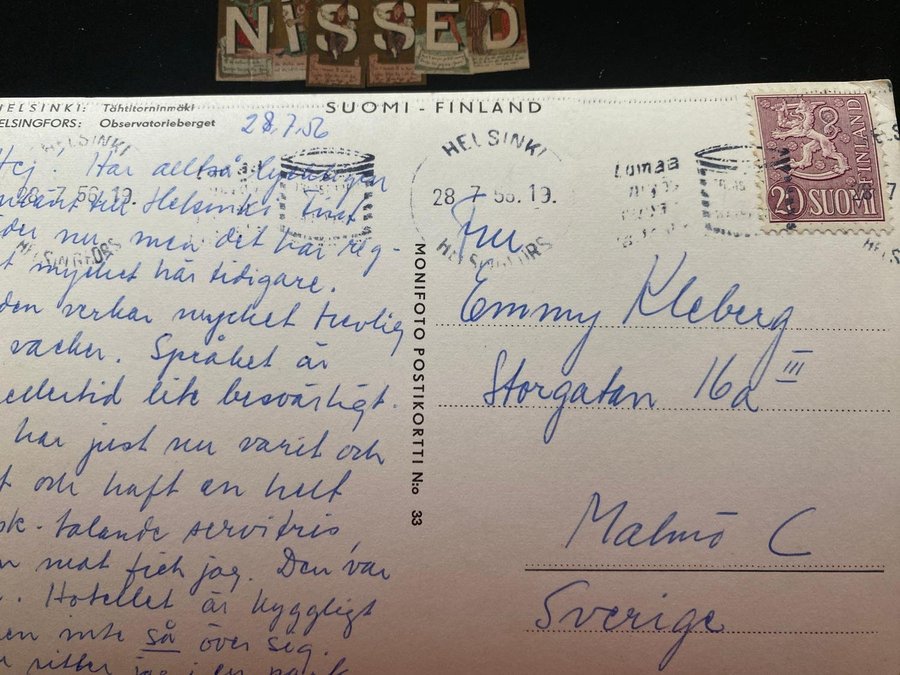 NiSSED
HELSINKI: Tähtitorninmäki
HELSINGFORS: Observatorieberget
SUOMI - FINLAND
28.7.56
Hej. Har alltså lyckligen
till Helsinki. Fint
der nu, men det har reg-
t mycket här tidigare.
den verkar mycket trevlig
vacker. Språket är
ellertid lite besvärligt.
har just nu varit och
t och haft en helt
sk-talande servitris,
n mat fick jag. Den var
. Hotellet är hyggligt
en inte så över sig.
sitter jag i en park
HELSINKI
28 7 56.19.
HELSINGFORS
HELSINKI
28 7 56.19.
HELSINGFORS
MONIFOTO POSTIKORTTI N:o 33
20 SUOMI FINLAND
Fru
Emmy Kleberg
Storgatan 16a III
Malmö C
Sverige